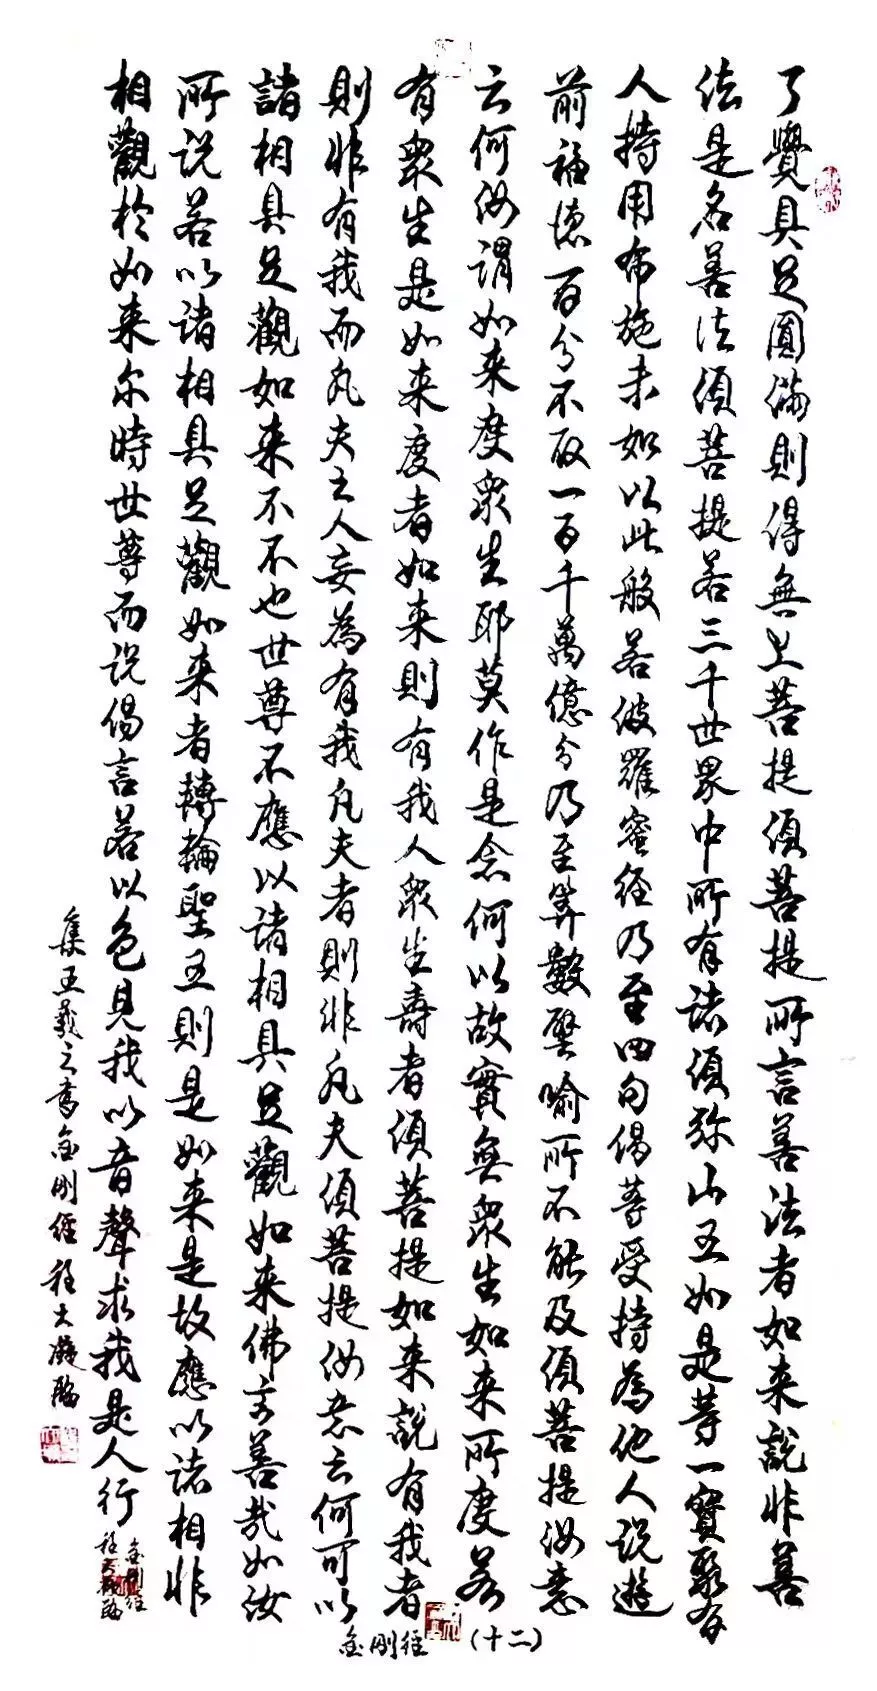 了覺具足圓滿則得無上菩提須菩提所言善法者如来說非善
法是名善法須菩提若三千世界中所有諸須弥山王如是等一寶聚有
人持用布施未如以此般若波羅蜜經乃至四句偈等受持為他人說
前福德百分不取一百千萬億分乃至算數譬喻所不能及須菩提汝意
云何汝謂如来度眾生耶莫作是念何以故實無眾生如来所度若
有眾生是如来度者如来則有我人眾生壽者須菩提如来說有我者
則非有我而凡夫之人妄為有我凡夫者則非凡夫須菩提汝意云何可以
諸相具足觀如来不不也世尊不應以諸相具足觀如来佛言善哉如汝
所說若以諸相具足觀如来者轉輪聖王則是如来是故應以諸相非
相觀於如来尔時世尊而說偈言若以色見我以音聲求我是人行
集王羲之書金剛經程大凝臨
金剛經
金剛經（十二）